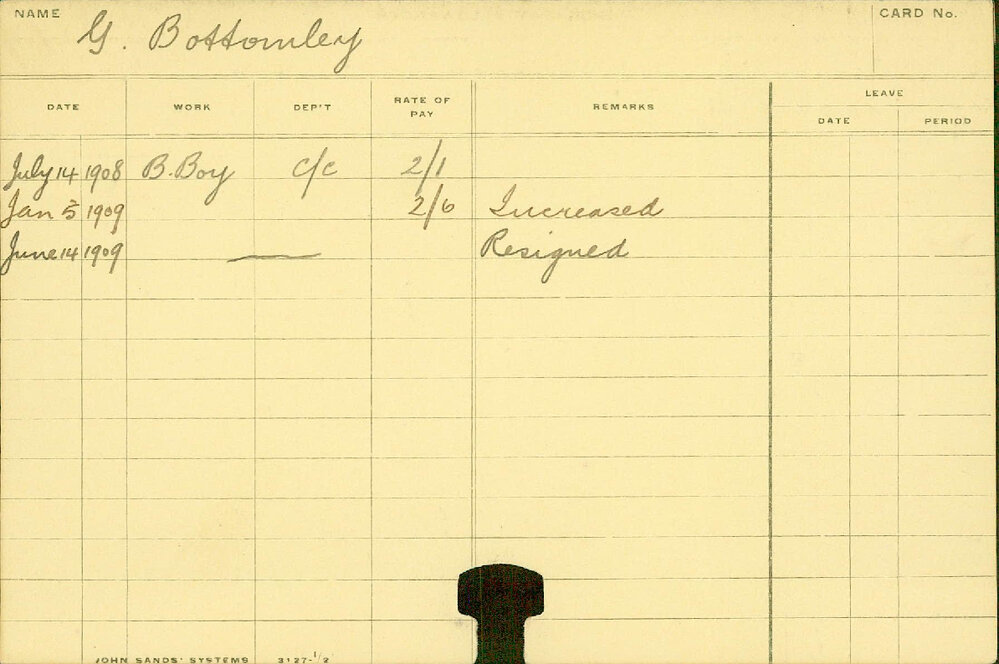 NAME G. Bottomley CARD No.
LEAVE
DATE WORK DEP'T RATE OF PAY REMARKS DATE PERIOD
July 14 1908 B. Boy C/C 2/1
Jan 5 1909 2/6 Increased
June 14 1909 — Resigned
JOHN SANDS' SYSTEMS 3127-1/2